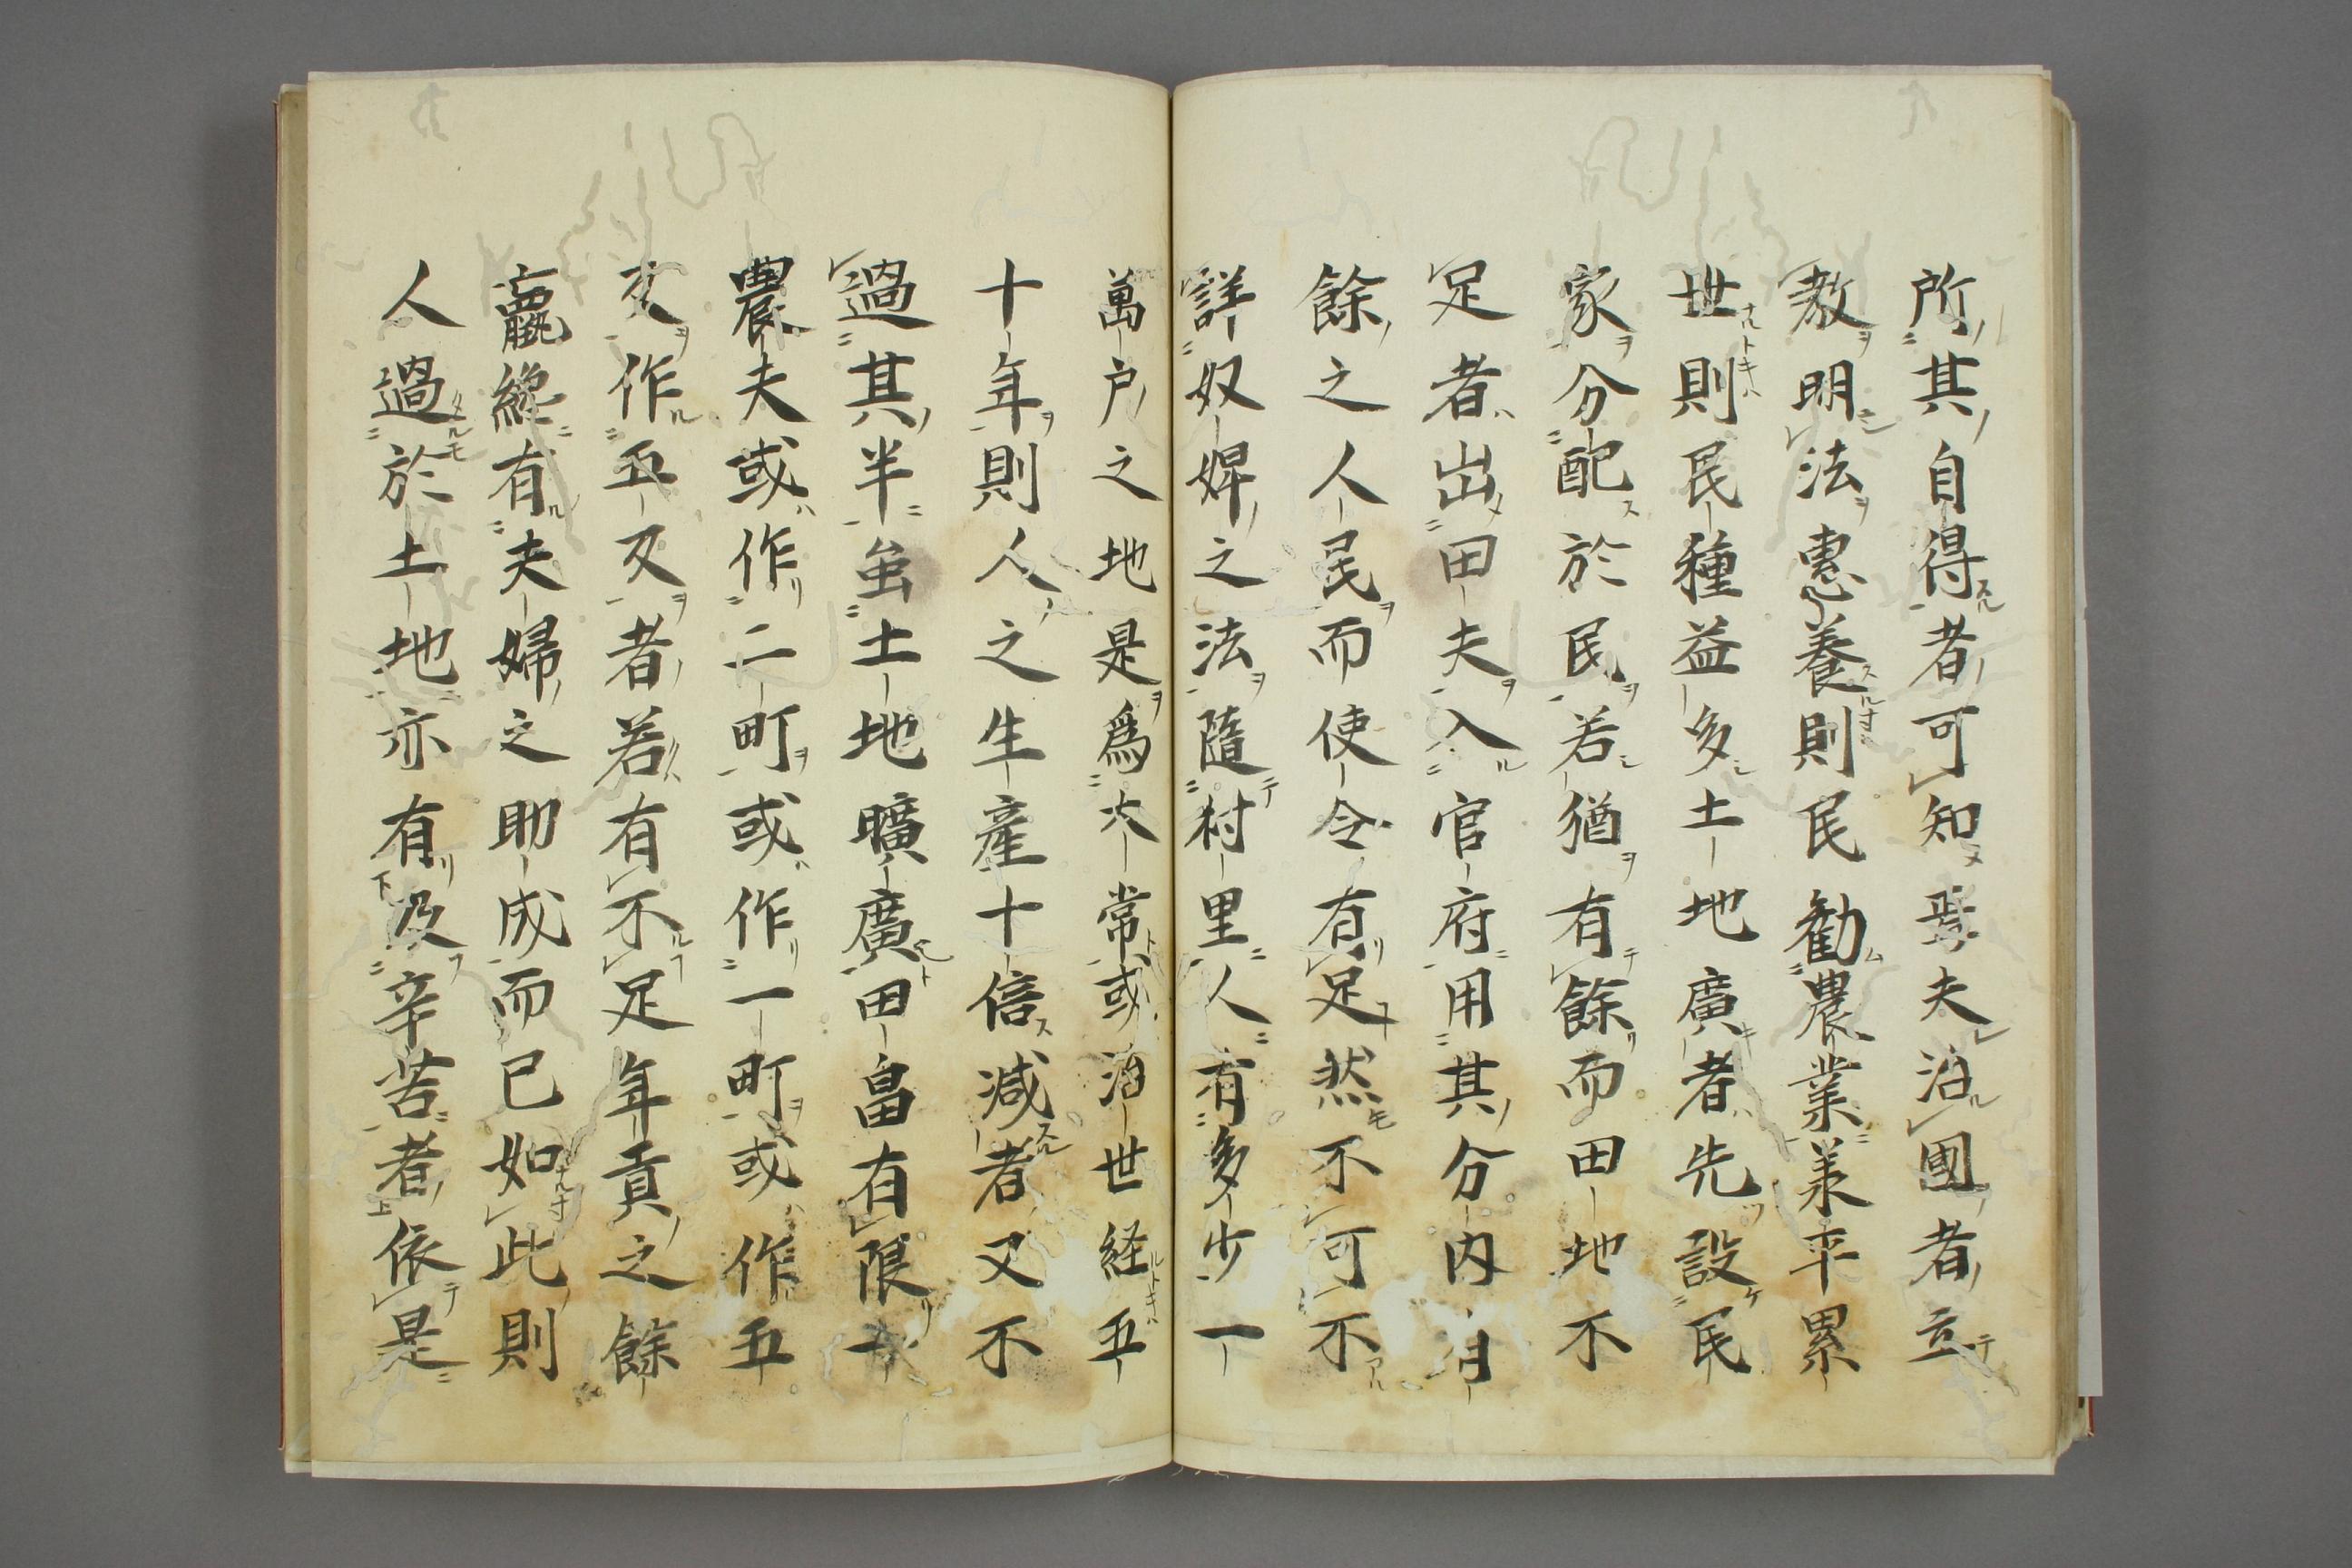 所其自得者可知焉夫治國者立
教明法惠養則民勸農業業平累
世則民種益多土地廣者先設民
家分配於民若猶有餘而田地不
足者出田夫入官府用其分内有
餘之人民而使令有足然不可不
詳奴婢之法隨村里人有多少一
萬戸之地是爲大常或治世経五
十年則人之生産十倍減者又不
過其半虽土地曠廣田畠有限一
農夫或作二町或作一町或作五
反作五反者若有不足年貢之餘
贏縱有夫婦之助成而已如此則
人過於土地亦有及辛苦者依是